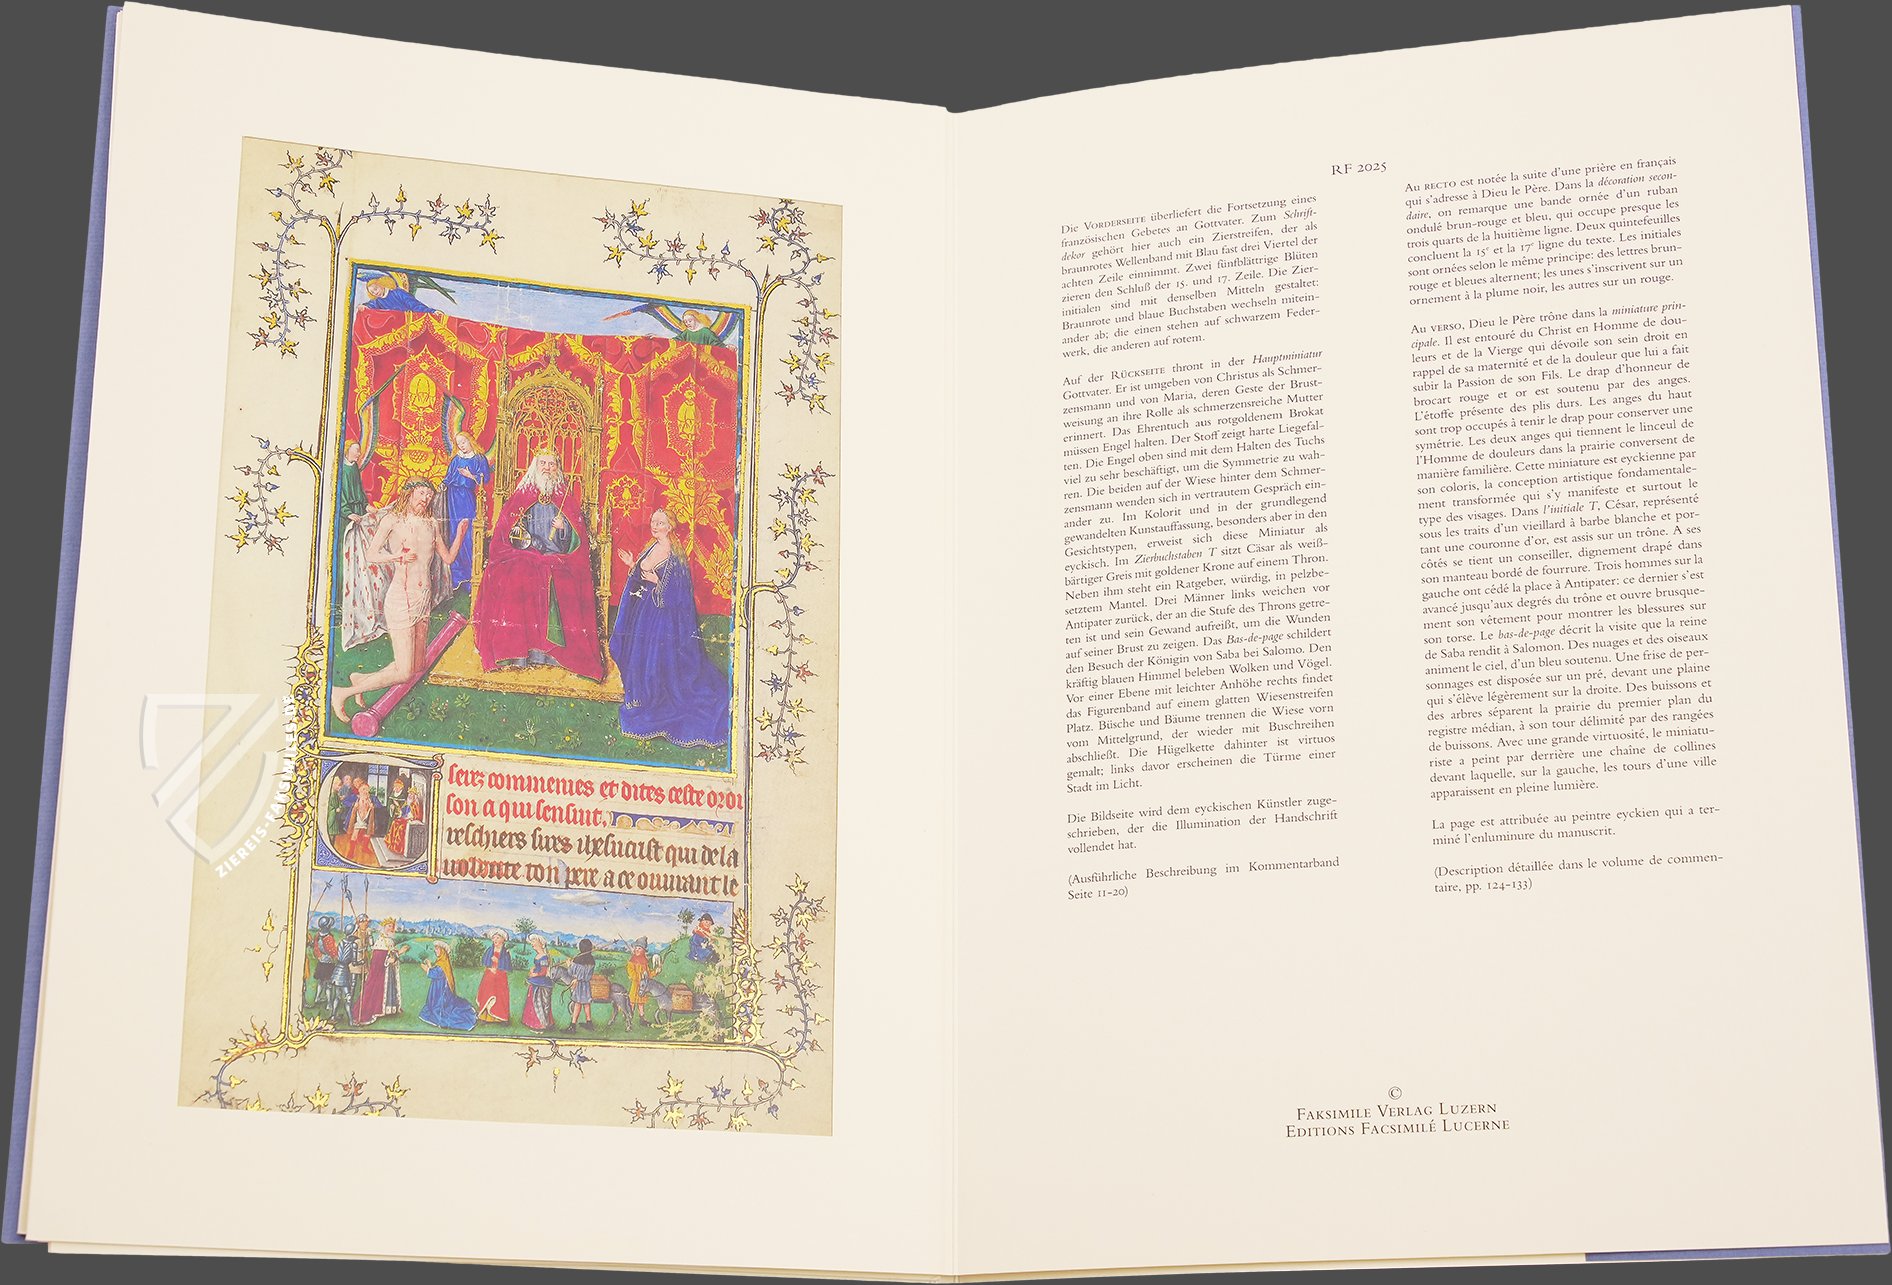 seiez commenies et dites ceste ozoi
son a qui sensuit.
reschiers sires ihesucrist qui de la
uolente ton pere a ce ouurant le
ZIEREIS-FAKSIMILES.DE
RF 2025
Die VORDERSEITE überliefert die Fortsetzung eines
französischen Gebetes an Gottvater. Zum Schrift-
dekor gehört hier auch ein Zierstreifen, der als
braunrotes Wellenband mit Blau fast drei Viertel der
achten Zeile einnimmt. Zwei fünfblättrige Blüten
zieren den Schluß der 15. und 17. Zeile. Die Zier-
initialen sind mit denselben Mitteln gestaltet:
Braunrote und blaue Buchstaben wechseln mitein-
ander ab; die einen stehen auf schwarzem Feder-
werk, die anderen auf rotem.
Auf der RÜCKSEITE thront in der Hauptminiatur
Gottvater. Er ist umgeben von Christus als Schmer-
zensmann und von Maria, deren Geste der Brust-
weisung an ihre Rolle als schmerzensreiche Mutter
erinnert. Das Ehrentuch aus rotgoldenem Brokat
müssen Engel halten. Der Stoff zeigt harte Liegefal-
ten. Die Engel oben sind mit dem Halten des Tuchs
viel zu sehr beschäftigt, um die Symmetrie zu wah-
ren. Die beiden auf der Wiese hinter dem Schmer-
zensmann wenden sich in vertrautem Gespräch ein-
ander zu. Im Kolorit und in der grundlegend
gewandelten Kunstauffassung, besonders aber in den
Gesichtstypen, erweist sich diese Miniatur als
eyckisch. Im Zierbuchstaben T sitzt Cäsar als weiß-
bärtiger Greis mit goldener Krone auf einem Thron.
Neben ihm steht ein Ratgeber, würdig, in pelzbe-
setztem Mantel. Drei Männer links weichen vor
Antipater zurück, der an die Stufe des Throns getre-
ten ist und sein Gewand aufreißt, um die Wunden
auf seiner Brust zu zeigen. Das Bas-de-page schildert
den Besuch der Königin von Saba bei Salomo. Den
kräftig blauen Himmel beleben Wolken und Vögel.
Vor einer Ebene mit leichter Anhöhe rechts findet
das Figurenband auf einem glatten Wiesenstreifen
Platz. Büsche und Bäume trennen die Wiese vorn
vom Mittelgrund, der wieder mit Buschreihen
abschließt. Die Hügelkette dahinter ist virtuos
gemalt; links davor erscheinen die Türme einer
Stadt im Licht.
Die Bildseite wird dem eyckischen Künstler zuge-
schrieben, der die Illumination der Handschrift
vollendet hat.
(Ausführliche Beschreibung im Kommentarband
Seite 11-20)
Au RECTO est notée la suite d'une prière en français
qui s'adresse à Dieu le Père. Dans la décoration secon-
daire, on remarque une bande ornée d'un ruban
ondulé brun-rouge et bleu, qui occupe presque les
trois quarts de la huitième ligne. Deux quintefeuilles
concluent la 15e et la 17e ligne du texte. Les initiales
sont ornées selon le même principe: des lettres brun-
rouge et bleues alternent; les unes s'inscrivent sur un
ornement à la plume noir, les autres sur un rouge.
Au VERSO, Dieu le Père trône dans la miniature prin-
cipale. Il est entouré du Christ en Homme de dou-
leurs et de la Vierge qui dévoile son sein droit en
rappel de sa maternité et de la douleur que lui a fait
subir la Passion de son Fils. Le drap d'honneur de
brocart rouge et or est soutenu par des anges.
L'étoffe présente des plis durs. Les anges du haut
sont trop occupés à tenir le drap pour conserver une
symétrie. Les deux anges qui tiennent le linceul de
l'Homme de douleurs dans la prairie conversent de
manière familière. Cette miniature est eyckienne par
son coloris, la conception artistique fondamentale-
ment transformée qui s'y manifeste et surtout le
type des visages. Dans l'initiale T, César, représenté
sous les traits d'un vieillard à barbe blanche et por-
tant une couronne d'or, est assis sur un trône. A ses
côtés se tient un conseiller, dignement drapé dans
son manteau bordé de fourrure. Trois hommes sur la
gauche ont cédé la place à Antipater: ce dernier s'est
avancé jusqu'aux degrés du trône et ouvre brusque-
ment son vêtement pour montrer les blessures sur
son torse. Le bas-de-page décrit la visite que la reine
de Saba rendit à Salomon. Des nuages et des oiseaux
animent le ciel, d'un bleu soutenu. Une frise de per-
sonnages est disposée sur un pré, devant une plaine
qui s'élève légèrement sur la droite. Des buissons et
des arbres séparent la prairie du premier plan du
registre médian, à son tour délimité par des rangées
de buissons. Avec une grande virtuosité, le miniatu-
riste a peint par derrière une chaîne de collines
devant laquelle, sur la gauche, les tours d'une ville
apparaissent en pleine lumière.
La page est attribuée au peintre eyckien qui a ter-
miné l'enluminure du manuscrit.
(Description détaillée dans le volume de commen-
taire, pp. 124-133)
©
FAKSIMILE VERLAG LUZERN
EDITIONS FACSIMILÉ LUCERNE